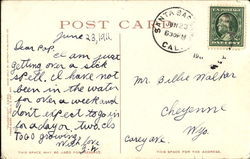 POST CARD
June 23, 1911.
Dear Pap.
I am just
getting over a sick
spell. I have not
been in the water
for over a week and
don't expect to go in
for a day or two. Its
too growing.
With love
SANTA BAR
JUN 23
630 PM
CAL.
Mr. Billie Walker
Cheyenne
Wyo.
Carey ave.
THIS SPACE MAY BE USED FOR
THIS SPACE FOR THE ADDRESS.